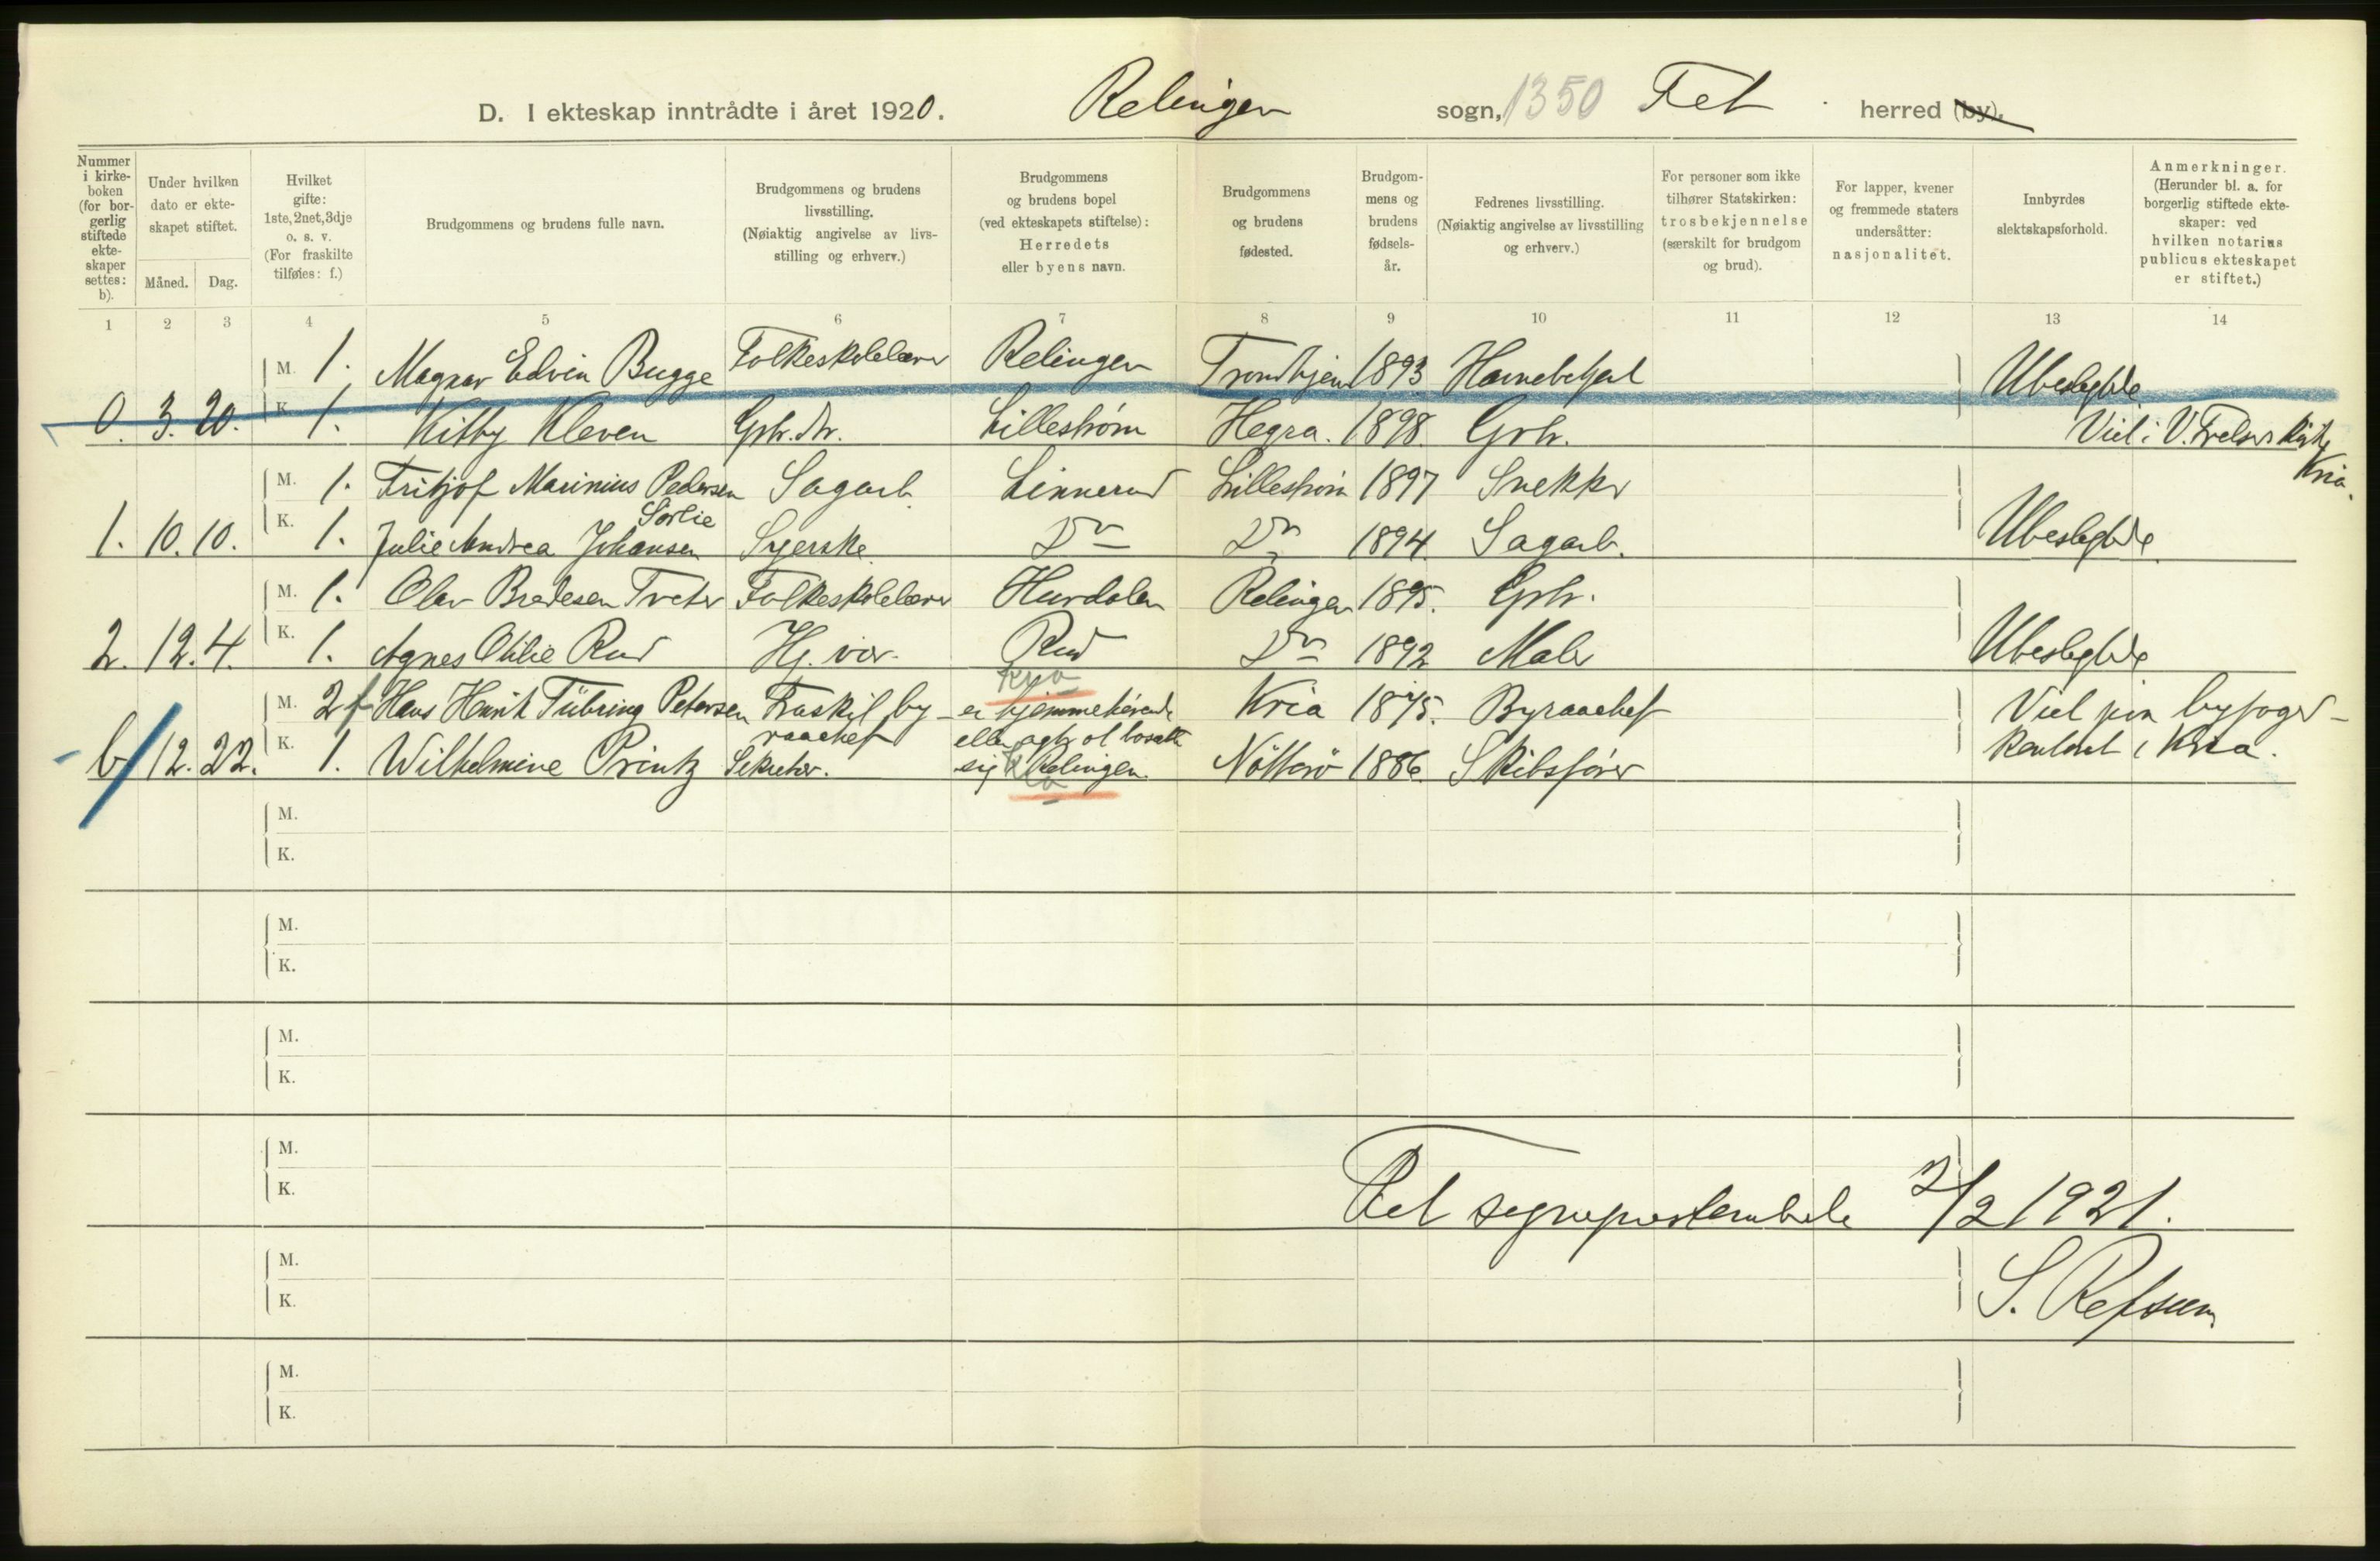 D. I ekteskap inntrådte i året 1920. Relingen sogn, 1350 Fet herred (by).
Nummer i kirkeboken (for borgerlig stiftede ekteskaper settes: b).
Under hvilken dato er ekteskapet stiftet.
Måned. Dag.
Hvilket gifte: 1ste, 2net, 3dje o. s. v. (For fraskilte tilføies: f.)
Brudgommens og brudens fulle navn.
Brudgommens og brudens livsstilling. (Nøiaktig angivelse av livsstilling og erhverv.)
Brudgommens og brudens bopel (ved ekteskapets stiftelse): Herredets eller byens navn.
Brudgommens og brudens fødested.
Brudgommens og brudens fødselsår.
Fedrenes livsstilling. (Nøiaktig angivelse av livsstilling og erhverv.)
For personer som ikke tilhører Statskirken: trosbekjennelse (særskilt for brudgom og brud).
For lapper, kvener og fremmede staters undersåtter: nasjonalitet.
Innbyrdes slektskapsforhold.
Anmerkninger. (Herunder bl. a. for borgerlig stiftede ekteskaper: ved hvilken notarius publicus ekteskapet er stiftet.)
1 2 3 4 5 6 7 8 9 10 11 12 13 14
M. 1. Magnar Edvin Bugge Folkeskolelærer Relingen Trondhjem 1893 Ubeslegtede
0. 3. 20. K. 1. Kitty Kleven Grbr. dtr. Lillestrøm Hegra. 1898. Grbr. Viet i V. Frelsers Kirke
Kria.
M. 1. Fritjof Marinius Pedersen Sagarb. Linnerud Lillestrøm 1897 Snekker
Sørlie
1. 10. 10. K. 1. Julie Andrea Johansen Syerske Do Do 1894. Sagarb. Ubeslegtede
M. 1. Olav Bredesen Treter Folkeskolelærer Hurdalen Relingen 1895. Grbr.
2. 12. 4. K. 1. Agnes Otilie Rud Hj. vær. Rud Do 1892 Maler Ubeslegtede
Kra
M. 2 f Hans Henrik Tübring Petersen Fraskilt by- er hjemmehørende Kria 1875. Byraachef Viet paa byfoged-
raachef eller agter at bosætte kontoret i Kria.
b 12. 22. K. 1. Wilhelmine Printz Sekretær. sig i Relingen. Nötterö 1886. Skibsfører
Kra
M.
K.
M.
K.
M.
K.
M.
K.
Fet sogneprestembede 2/2 1921.
M.
K.
S. Refsum
M.
K.